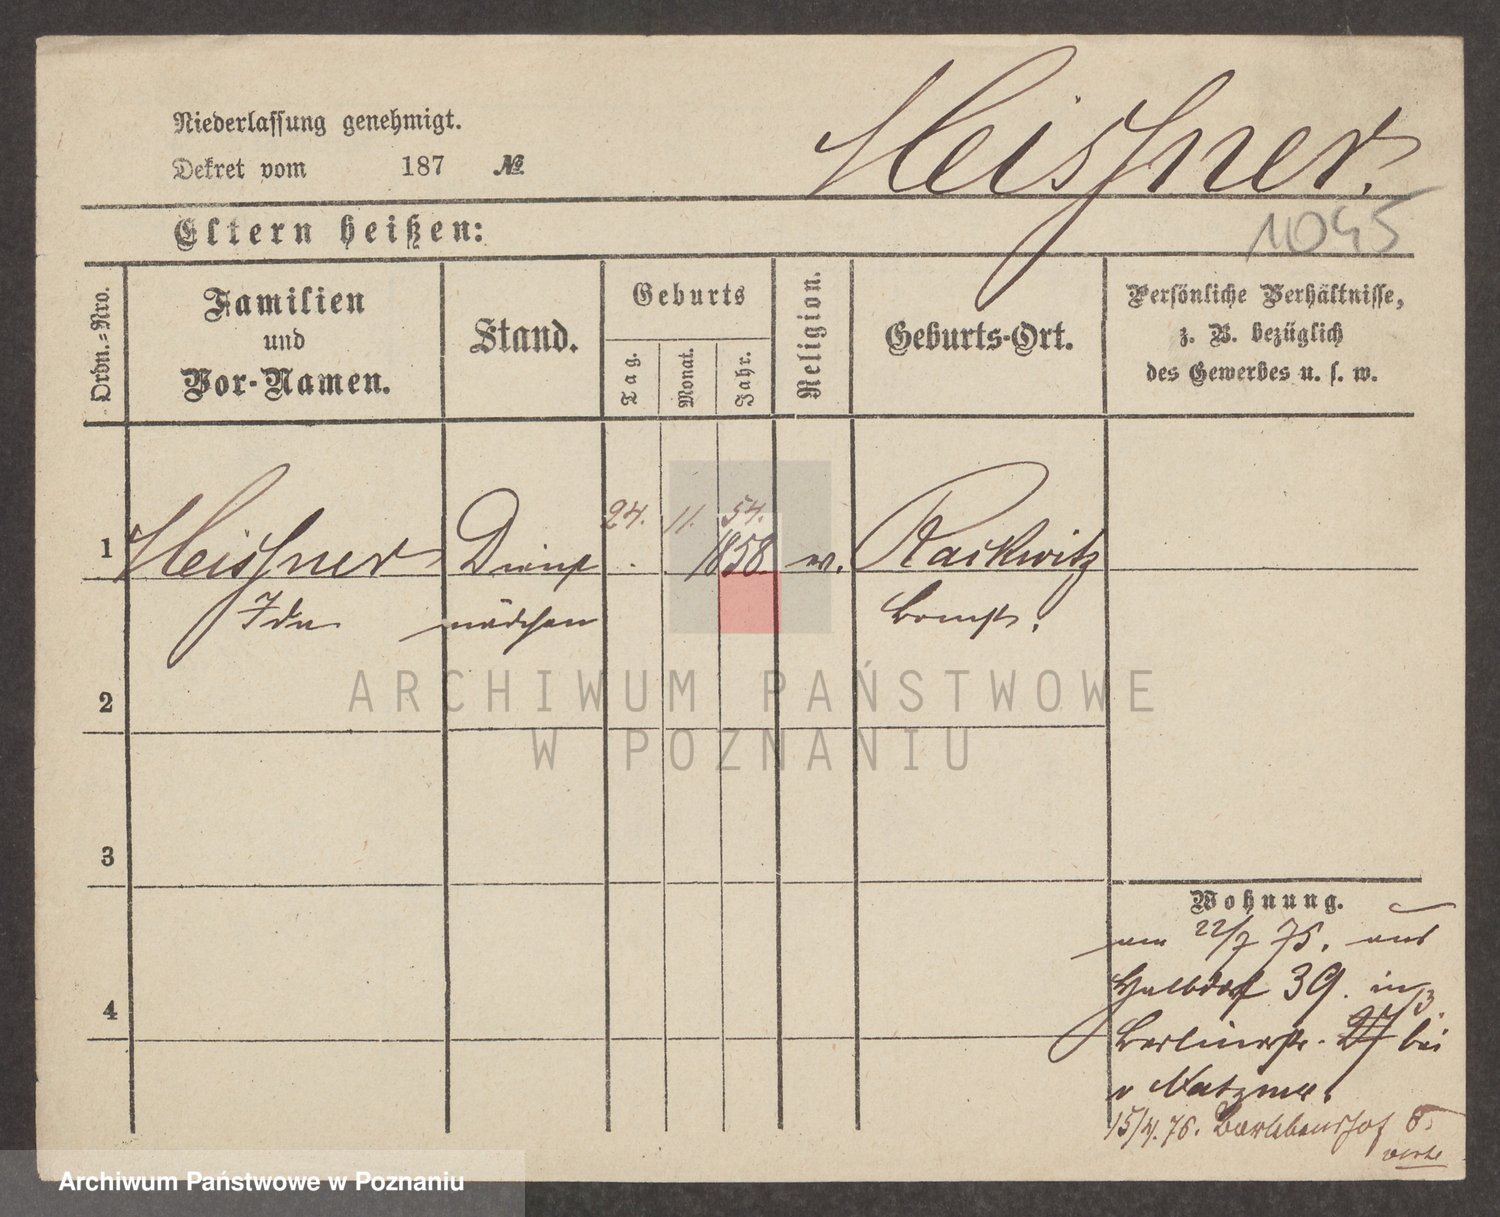 Niederlassung genehmigt.
Dekret vom 187 №
Meißner.
1045
Eltern heißen:
Ordn.-Nro.
Familien
und
Vor-Namen.
Stand.
Geburts
Tag.
Monat.
Jahr.
Religion.
Geburts-Ort.
Persönliche Verhältnisse,
z. B. bezüglich
des Gewerbes u. s. w.
24. 11. 54.
1 Meißner Dienst 1858 ev. Rackwitz
Ida mädchen Bomst.
2
3
4
Wohnung.
am 22/7 75. aus
Halbdorf 39. in
Berlinerstr. 27 bei
v Natzmer.
15/4. 76. Barlebenshof 8.
verte
ARCHIWUM PAŃSTWOWE
W POZNANIU
Archiwum Państwowe w Poznaniu